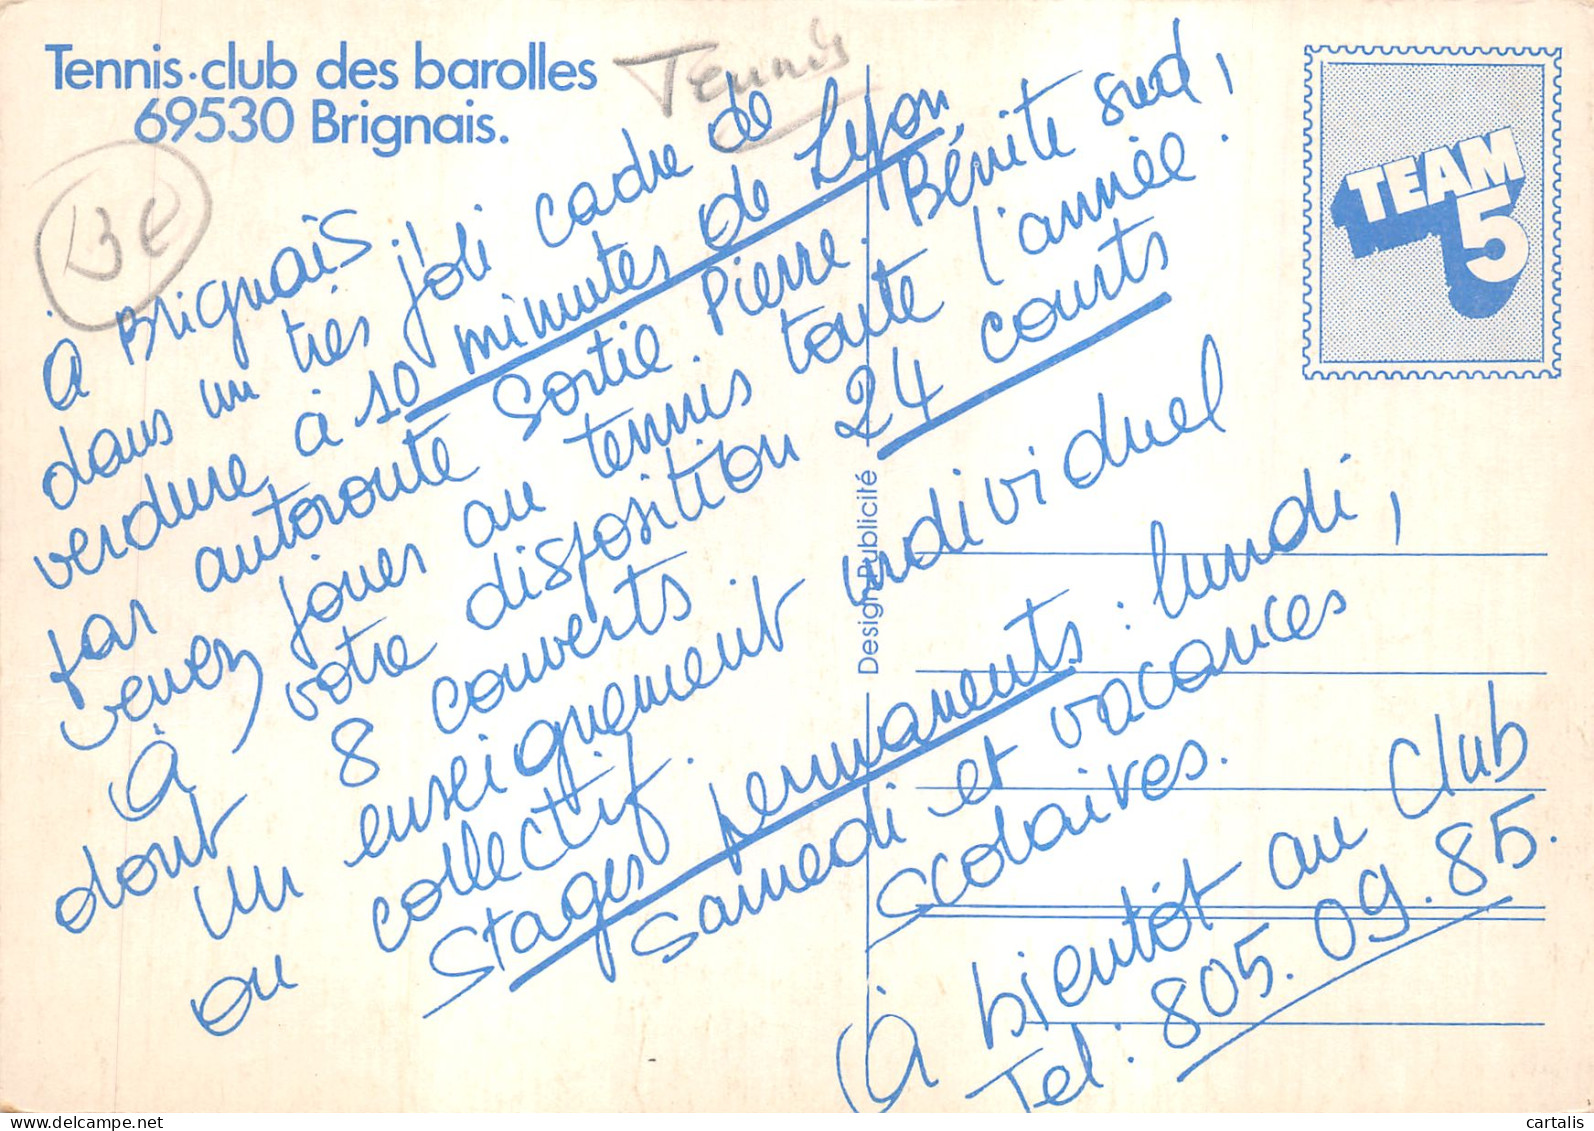 Tennis·club des barolles
69530 Brignais.
Tennis
TEAM
5
à Brignais
dans un très joli cadre de
verdure, à 10 minutes de Lyon,
par autoroute Sortie. Pierre. Bénite sud,
venez jouer au tennis toute l'année.
à votre disposition 24 courts
dont 8 couverts
un enseignement individuel
ou collectif.
Stages permanents : lundi,
samedi et vacances
scolaires.
à bientôt au Club
Tel : 805.09.85.
Design Publicité
cartalis